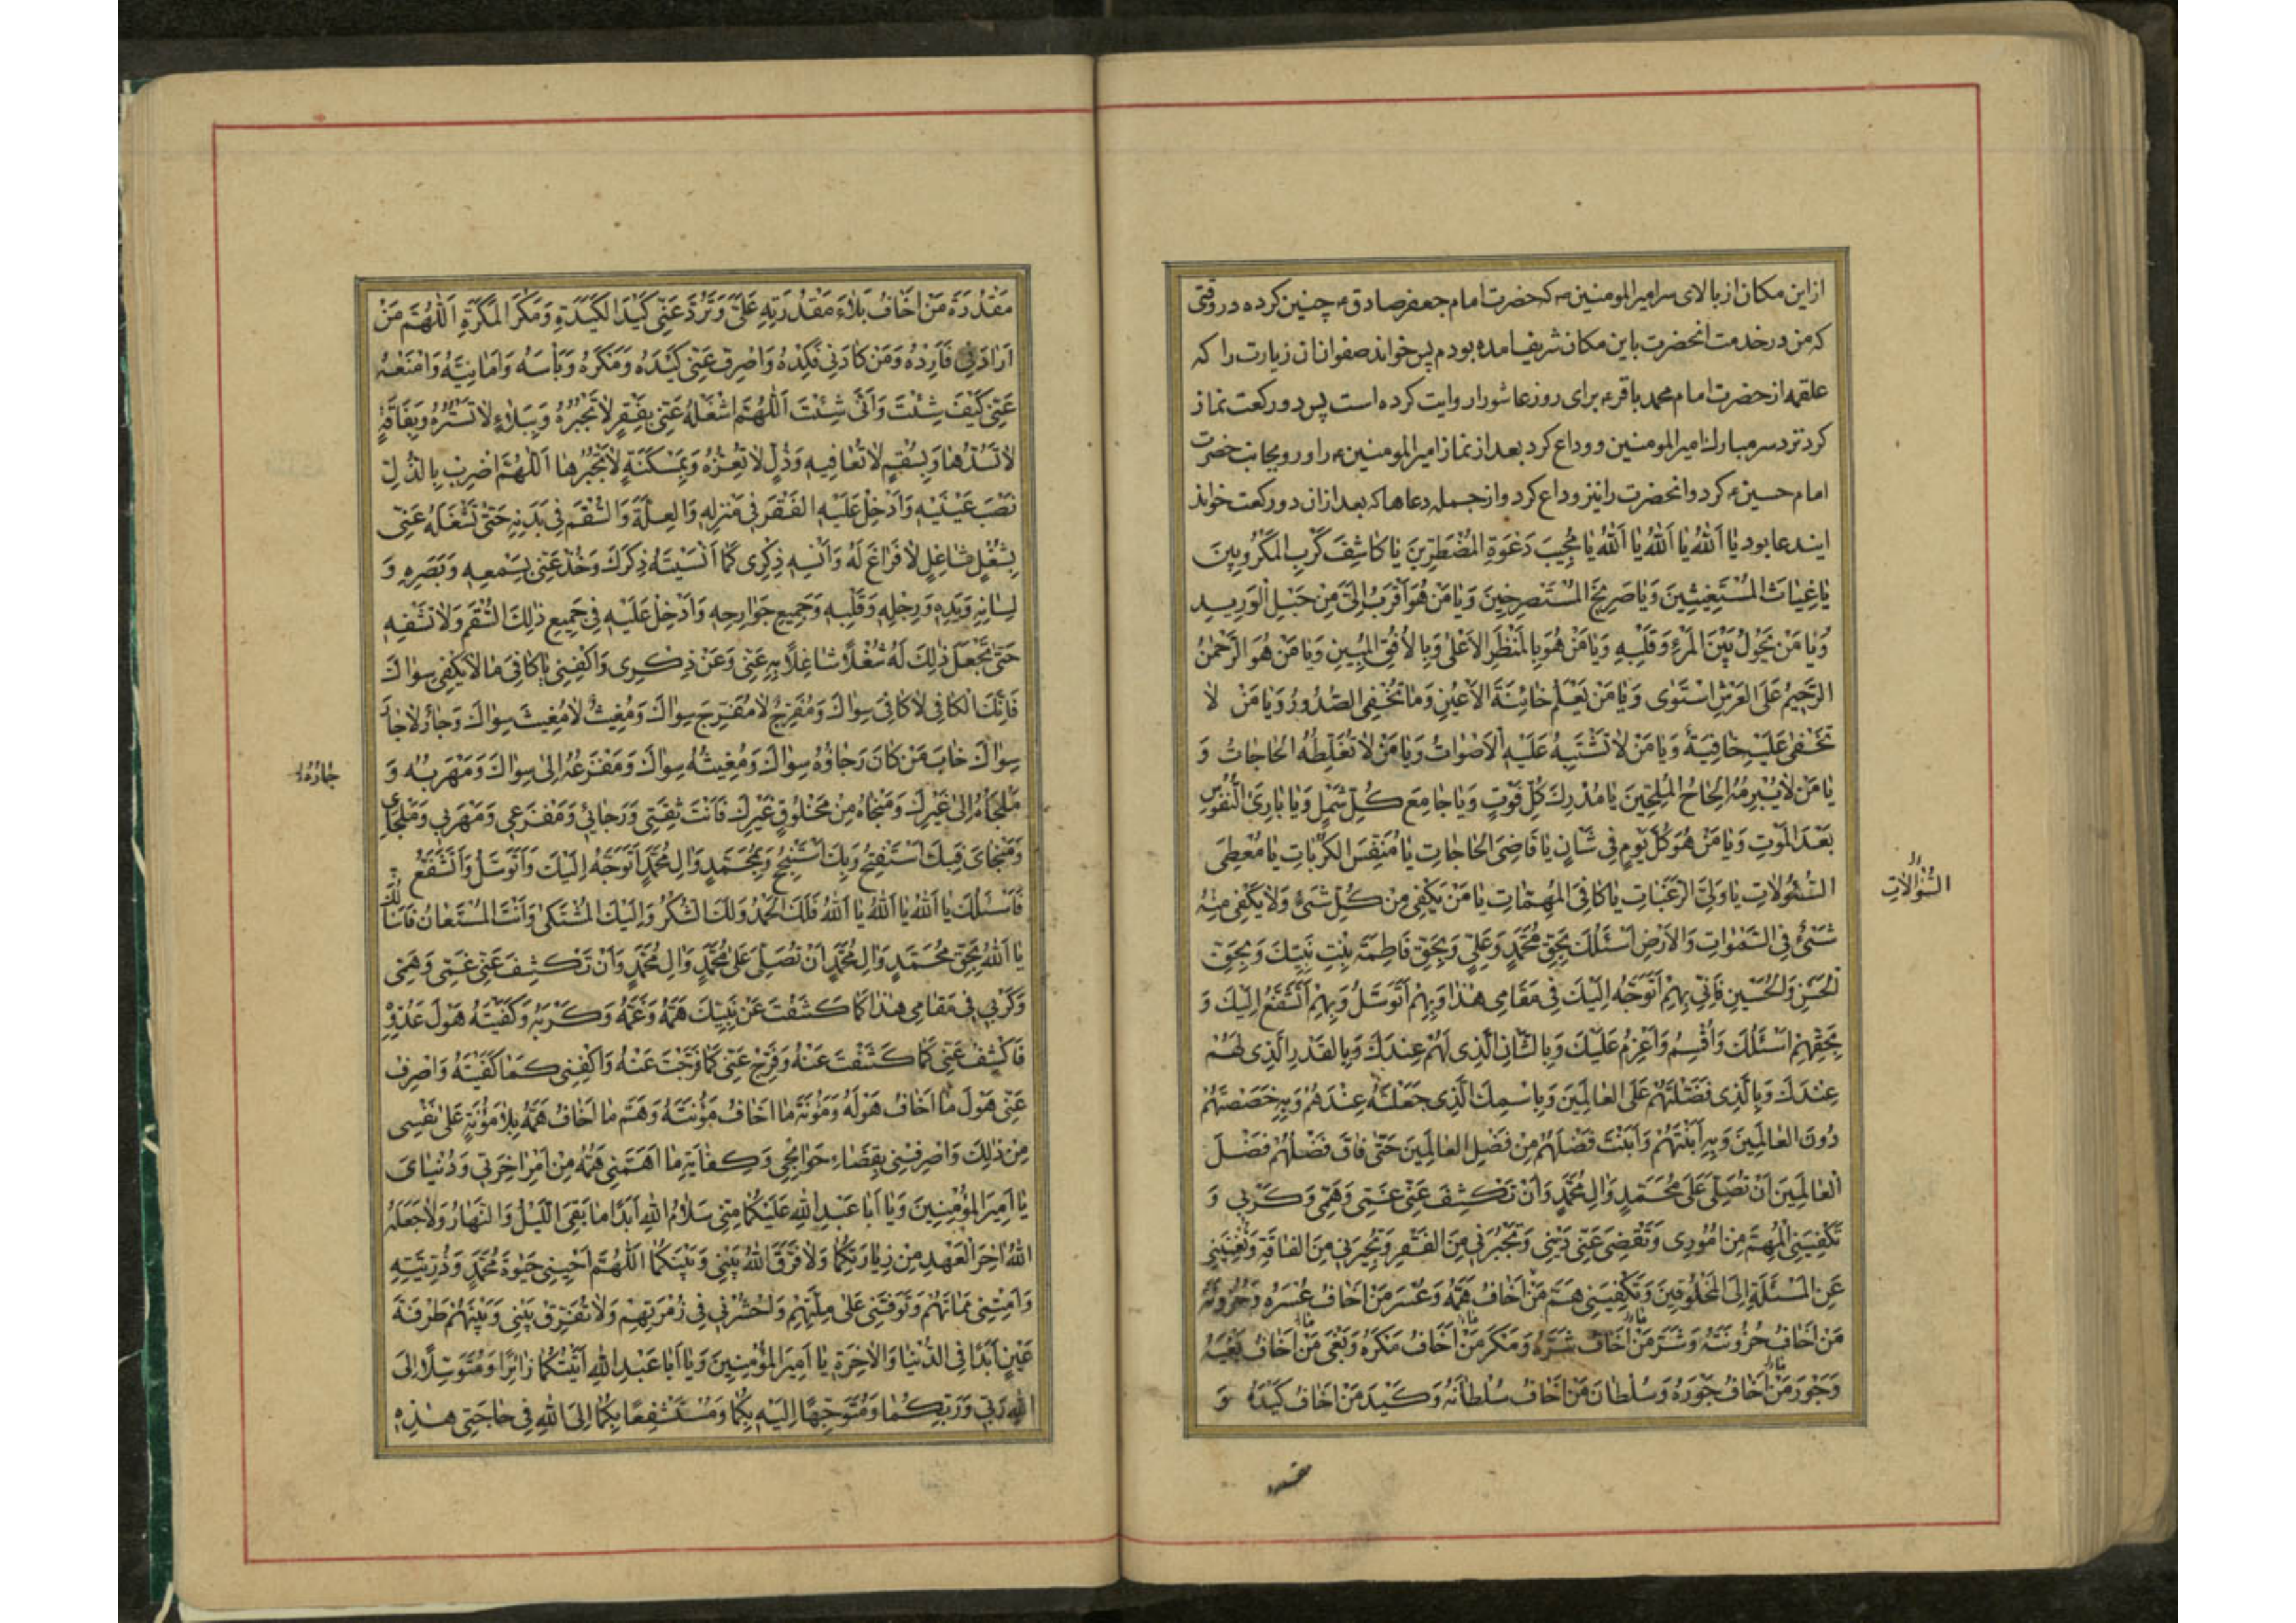 ازاین مکان از بالای سر امیرالمومنین ع که حضرت امام جعفر صادق ع چنین کرده در وقتی
که من در خدمت انحضرت باین مکان شریف امده بودم پس خواند صفوان ان زیارت را که
علقمه از حضرت امام محمد باقر ع برای روز عاشورا روایت کرده است پس دو رکعت نماز
کرد نزد سر مبارک امیرالمومنین و وداع کرد بعد از نماز امیرالمومنین ع را و رو بجانب حضرت
امام حسین ع کرد و انحضرت را نیز وداع کرد و از جمله دعاها که بعد از ان دو رکعت خواند
ایندعا بود یٰا اَللّٰهُ یٰا اَللّٰهُ یٰا اَللّٰهُ یٰا مُجِیبَ دَعْوَةِ المُضْطَرّینَ یٰا کٰاشِفَ کُرَبِ المَکْرُوبِینَ
یٰا غِیٰاثَ المُسْتَغِیثِینَ وَیٰا صَرِیخَ المُسْتَصْرِخِینَ وَیٰا مَنْ هُوَ اَقْرَبُ اِلَیَّ مِنْ حَبْلِ الْوَرِیدِ
وَیٰا مَنْ یَحُولُ بَیْنَ المَرْءِ وَقَلْبِهِ وَیٰا مَنْ هُوَ بِالمَنْظَرِ الاَعْلیٰ وَبِالاُفُقِ المُبِینِ وَیٰا مَنْ هُوَ الرَّحْمٰنُ
الرَّحِیمُ عَلَی العَرْشِ اسْتَویٰ وَیٰا مَنْ یَعْلَمُ خٰائِنَةَ الاَعْیُنِ وَمٰا تُخْفِی الصُّدُورُ وَیٰا مَنْ لٰا
تَخْفیٰ عَلَیْهِ خٰافِیَةٌ وَیٰا مَنْ لٰا تَشْتَبِهُ عَلَیْهِ الاَصْوٰاتُ وَیٰا مَنْ لٰا تُغَلِّطُهُ الحٰاجٰاتُ وَ
یٰا مَنْ لٰا یُبْرِمُهُ اِلْحٰاحُ المُلِحِّینَ یٰا مُدْرِکَ کُلِّ فَوْتٍ وَیٰا جٰامِعَ کُلِّ شَمْلٍ وَیٰا بٰارِئَ النُّفُوسِ
بَعْدَ المَوْتِ وَیٰا مَنْ هُوَ کُلَّ یَوْمٍ فِی شَأنٍ یٰا قٰاضِیَ الحٰاجٰاتِ یٰا مُنَفِّسَ الکُرُبٰاتِ یٰا مُعْطِیَ
السُّؤُلٰاتِ یٰا وَلِیَّ الرَّغَبٰاتِ یٰا کٰافِیَ المُهِمّٰاتِ یٰا مَنْ یَکْفِی مِنْ کُلِّ شَیْءٍ وَلٰا یَکْفِی مِنْهُ
السُّؤٰالٰاتِ
شَیْءٌ فِی السَّمٰوٰاتِ وَالاَرْضِ اَسْئَلُکَ بِحَقِّ مُحَمَّدٍ وَعَلِیٍّ وَبِحَقِّ فٰاطِمَةَ بِنْتِ نَبِیِّکَ وَبِحَقِّ
الْحَسَنِ وَالْحُسَیْنِ فَاِنِّی بِهِمْ اَتَوَجَّهُ اِلَیْکَ فِی مَقٰامِی هٰذٰا وَبِهِمْ اَتَوَسَّلُ وَبِهِمْ اَتَشَفَّعُ اِلَیْکَ وَ
بِحَقِّهِمْ اَسْئَلُکَ وَاُقْسِمُ وَاَعْزِمُ عَلَیْکَ وَبِالشَّأنِ الَّذِی لَهُمْ عِنْدَکَ وَبِالقَدْرِ الَّذِی لَهُمْ
عِنْدَکَ وَبِالَّذِی فَضَّلْتَهُمْ عَلَی العٰالَمِینَ وَبِاسْمِکَ الَّذِی جَعَلْتَهُ عِنْدَهُمْ وَبِهِ خَصَصْتَهُمْ
دُونَ العٰالَمِینَ وَبِهِ اَبَنْتَهُمْ وَاَبَنْتَ فَضْلَهُمْ مِنْ فَضْلِ العٰالَمِینَ حَتّیٰ فٰاقَ فَضْلُهُمْ فَضْلَ
العٰالَمِینَ اَنْ تُصَلِّیَ عَلیٰ مُحَمَّدٍ وَاٰلِ مُحَمَّدٍ وَاَنْ تَکْشِفَ عَنِّی غَمِّی وَهَمِّی وَکَرْبِی وَ
تَکْفِیَنِی المُهِمَّ مِنْ اُمُورِی وَتَقْضِیَ عَنِّی دَیْنِی وَتَجْبُرَنِی مِنَ الفَقْرِ وَتُجِیرَنِی مِنَ الفٰاقَةِ وَتُغْنِیَنِی
عَنِ المَسْئَلَةِ اِلَی المَخْلُوقِینَ وَتَکْفِیَنِی هَمَّ مَنْ اَخٰافُ هَمَّهُ وَعُسْرَ مَنْ اَخٰافُ عُسْرَهُ وَحُزُونَةَ
مَنْ اَخٰافُ حُزُونَتَهُ وَشَرَّ مَنْ اَخٰافُ شَرَّهُ وَمَکْرَ مَنْ اَخٰافُ مَکْرَهُ وَبَغْیَ مَنْ اَخٰافُ بَغْیَهُ
وَجَوْرَ مَنْ اَخٰافُ جَوْرَهُ وَسُلْطٰانَ مَنْ اَخٰافُ سُلْطٰانَهُ وَکَیْدَ مَنْ اَخٰافُ کَیْدَهُ وَ
مَقْدُرَةَ مَنْ اَخٰافُ بَلٰاءَ مَقْدُرَتِهِ عَلَیَّ وَتَرُدَّ عَنِّی کَیْدَ الکَیَدَةِ وَمَکْرَ المَکَرَةِ اَللّٰهُمَّ مَنْ
اَرٰادَنِی فَاَرِدْهُ وَمَنْ کٰادَنِی فَکِدْهُ وَاصْرِفْ عَنِّی کَیْدَهُ وَمَکْرَهُ وَبَأسَهُ وَاَمٰانِیَّهُ وَامْنَعْهُ
عَنِّی کَیْفَ شِئْتَ وَاَنّیٰ شِئْتَ اَللّٰهُمَّ اشْغَلْهُ عَنِّی بِفَقْرٍ لٰا تَجْبُرُهُ وَبِبَلٰاءٍ لٰا تَسْتُرُهُ وَبِفٰاقَةٍ
لٰا تَسُدُّهٰا وَبِسُقْمٍ لٰا تُعٰافِیهِ وَذُلٍّ لٰا تُعِزُّهُ وَبِمَسْکَنَةٍ لٰا تَجْبُرُهٰا اَللّٰهُمَّ اضْرِبْ بِالذُّلِّ
نَصْبَ عَیْنَیْهِ وَاَدْخِلْ عَلَیْهِ الفَقْرَ فِی مَنْزِلِهِ وَالعِلَّةَ وَالسُّقْمَ فِی بَدَنِهِ حَتّیٰ تَشْغَلَهُ عَنِّی
بِشُغْلٍ شٰاغِلٍ لٰا فَرٰاغَ لَهُ وَاَنْسِهِ ذِکْرِی کَمٰا اَنْسَیْتَهُ ذِکْرَکَ وَخُذْ عَنِّی بِسَمْعِهِ وَبَصَرِهِ وَ
لِسٰانِهِ وَیَدِهِ وَرِجْلِهِ وَقَلْبِهِ وَجَمِیعِ جَوٰارِحِهِ وَاَدْخِلْ عَلَیْهِ فِی جَمِیعِ ذٰلِکَ السُّقْمَ وَلٰا تَشْفِهِ
حَتّیٰ تَجْعَلَ ذٰلِکَ لَهُ شُغْلًا شٰاغِلًا بِهِ عَنِّی وَعَنْ ذِکْرِی وَاکْفِنِی یٰا کٰافِیَ مٰا لٰا یَکْفِی سِوٰاکَ
فَاِنَّکَ الکٰافِی لٰا کٰافِیَ سِوٰاکَ وَمُفَرِّجٌ لٰا مُفَرِّجَ سِوٰاکَ وَمُغِیثٌ لٰا مُغِیثَ سِوٰاکَ وَجٰارٌ لٰا جٰارَ
سِوٰاکَ خٰابَ مَنْ کٰانَ رَجٰاؤُهُ سِوٰاکَ وَمُغِیثُهُ سِوٰاکَ وَمَفْزَعُهُ اِلیٰ سِوٰاکَ وَمَهْرَبُهُ وَ
جٰارُهُ
مَلْجَاُهُ اِلیٰ غَیْرِکَ وَمَنْجٰاهُ مِنْ مَخْلُوقٍ غَیْرِکَ فَاَنْتَ ثِقَتِی وَرَجٰائِی وَمَفْزَعِی وَمَهْرَبِی وَمَلْجَایَ
وَمَنْجٰایَ فَبِکَ اَسْتَفْتِحُ وَبِکَ اَسْتَنْجِحُ وَبِمُحَمَّدٍ وَاٰلِ مُحَمَّدٍ اَتَوَجَّهُ اِلَیْکَ وَاَتَوَسَّلُ وَاَتَشَفَّعُ
فَاَسْئَلُکَ یٰا اَللّٰهُ یٰا اَللّٰهُ یٰا اَللّٰهُ فَلَکَ الحَمْدُ وَلَکَ الشُّکْرُ وَاِلَیْکَ المُشْتَکیٰ وَاَنْتَ المُسْتَعٰانُ فَاَسْاَلُکَ
یٰا اَللّٰهُ بِحَقِّ مُحَمَّدٍ وَاٰلِ مُحَمَّدٍ اَنْ تُصَلِّیَ عَلیٰ مُحَمَّدٍ وَاٰلِ مُحَمَّدٍ وَاَنْ تَکْشِفَ عَنِّی غَمِّی وَهَمِّی
وَکَرْبِی فِی مَقٰامِی هٰذٰا کَمٰا کَشَفْتَ عَنْ نَبِیِّکَ هَمَّهُ وَغَمَّهُ وَکَرْبَهُ وَکَفَیْتَهُ هَوْلَ عَدُوِّهِ
فَاکْشِفْ عَنِّی کَمٰا کَشَفْتَ عَنْهُ وَفَرِّجْ عَنِّی کَمٰا فَرَّجْتَ عَنْهُ وَاکْفِنِی کَمٰا کَفَیْتَهُ وَاصْرِفْ
عَنِّی هَوْلَ مٰا اَخٰافُ هَوْلَهُ وَمَؤُنَةَ مٰا اَخٰافُ مَؤُنَتَهُ وَهَمَّ مٰا اَخٰافُ هَمَّهُ بِلٰا مَؤُنَةٍ عَلیٰ نَفْسِی
مِنْ ذٰلِکَ وَاصْرِفْنِی بِقَضٰاءِ حَوٰائِجِی وَکِفٰایَةِ مٰا اَهَمَّنِی هَمُّهُ مِنْ اَمْرِ اٰخِرَتِی وَدُنْیٰایَ
یٰا اَمِیرَ المُؤْمِنِینَ وَیٰا اَبٰا عَبْدِ اللّٰهِ عَلَیْکُمٰا مِنِّی سَلٰامُ اللّٰهِ اَبَدًا مٰا بَقِیَ اللَّیْلُ وَالنَّهٰارُ وَلٰا جَعَلَهُ
اللّٰهُ اٰخِرَ العَهْدِ مِنْ زِیٰارَتِکُمٰا وَلٰا فَرَّقَ اللّٰهُ بَیْنِی وَبَیْنَکُمٰا اَللّٰهُمَّ اَحْیِنِی حَیٰوةَ مُحَمَّدٍ وَذُرِّیَّتِهِ
وَاَمِتْنِی مَمٰاتَهُمْ وَتَوَفَّنِی عَلیٰ مِلَّتِهِمْ وَاحْشُرْنِی فِی زُمْرَتِهِمْ وَلٰا تُفَرِّقْ بَیْنِی وَبَیْنَهُمْ طَرْفَةَ
عَیْنٍ اَبَدًا فِی الدُّنْیٰا وَالاٰخِرَةِ یٰا اَمِیرَ المُؤْمِنِینَ وَیٰا اَبٰا عَبْدِ اللّٰهِ اَتَیْتُکُمٰا زٰائِرًا وَمُتَوَسِّلًا اِلَی
اللّٰهِ رَبِّی وَرَبِّکُمٰا وَمُتَوَجِّهًا اِلَیْهِ بِکُمٰا وَمُسْتَشْفِعًا بِکُمٰا اِلَی اللّٰهِ فِی حٰاجَتِی هٰذِهِ